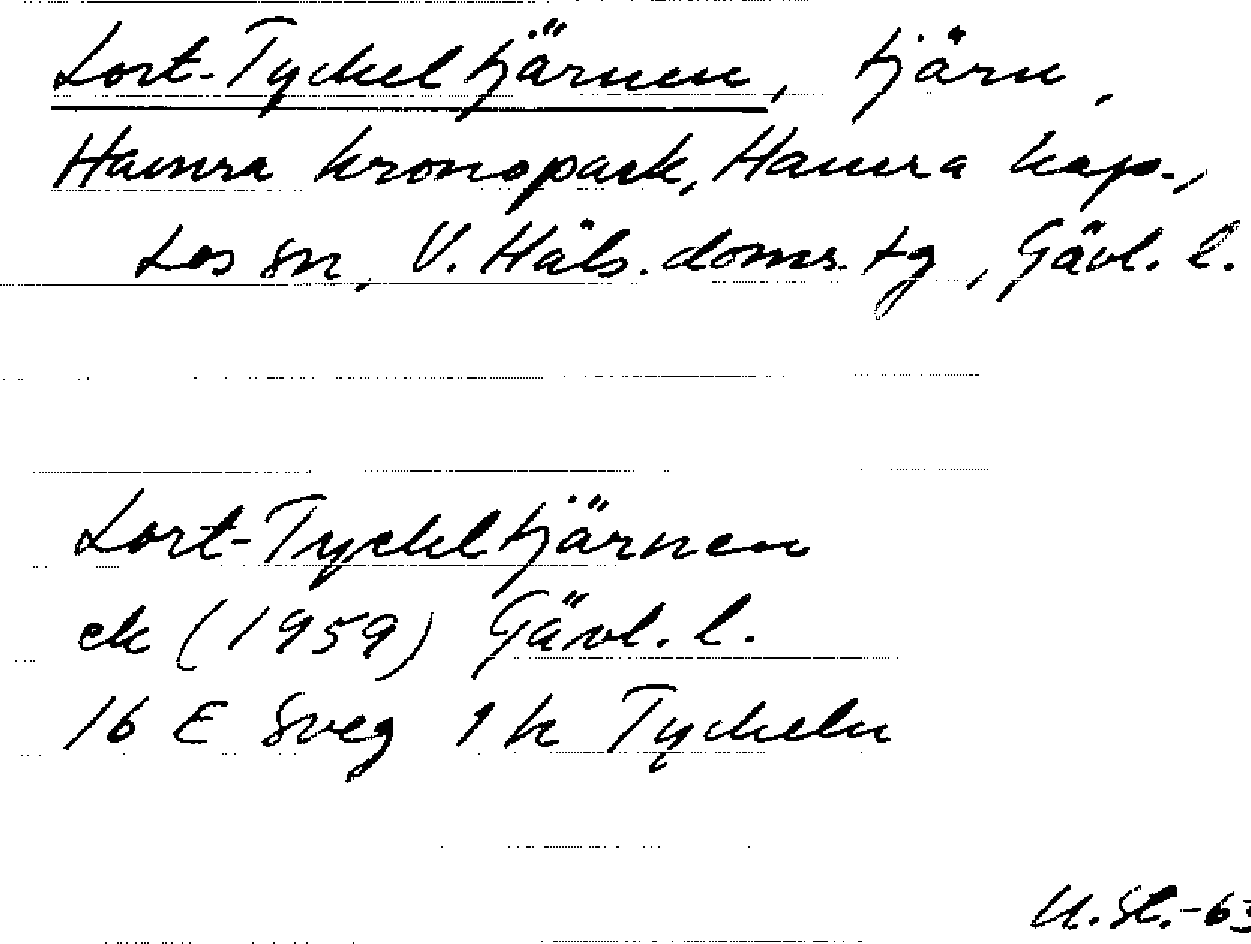 Lort-Tyckeltjärnen, tjärn,
Hamra kronopark, Hamra kap.,
Los sn, V. Häls. doms. tg, Gävl. l.
Lort-Tyckeltjärnen
ek (1959) Gävl. l.
16 E Sveg 1 h Tyckeln
U. St.-63